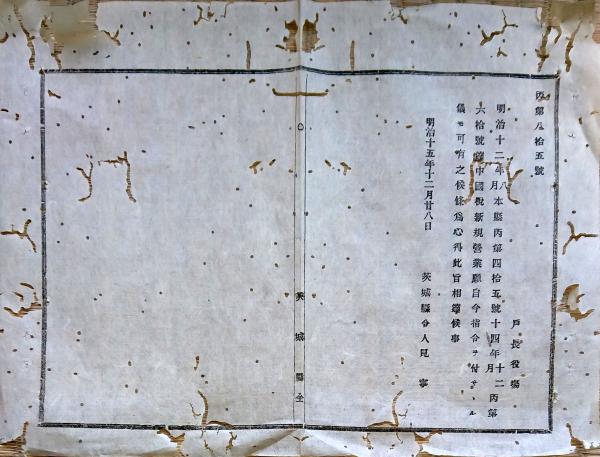 丙第八拾五號
戸長役塲
明治十二年八月本縣丙第四拾五號十四年十二月丙第
六拾號達中國稅新規營業願自今指令ヲ付セサル
儀モ可有之候條爲心得此旨相達候事
明治十五年十二月廿八日
茨城縣令人見寧
茨城縣令